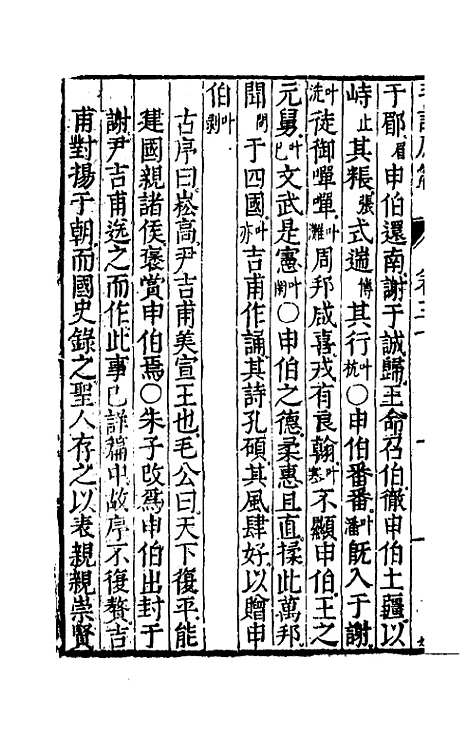 于郿眉申伯還南謝于誠歸王命召伯徹申伯土疆以
峙止其粻張式遄傳其行叶杭〇申伯番番叶潘既入于謝
叶洗徒御嘽嘽叶灘周邦咸喜戎有良翰叶寒不顯申伯王之
元舅叶已文武是憲叶〇申伯之德柔惠且直揉此萬邦
聞問于四國叶亦吉甫作誦其詩孔碩其風肆好以贈申
伯叶剥
古序曰崧高尹吉甫美宣王也毛公曰天下復平能
建國親諸侯褒賞申伯焉〇朱子改爲申伯出封于
謝尹吉甫送之而作此事已詳篇中故序不復贅吉
甫對揚于朝而國史錄之聖人存之以表親親崇賢